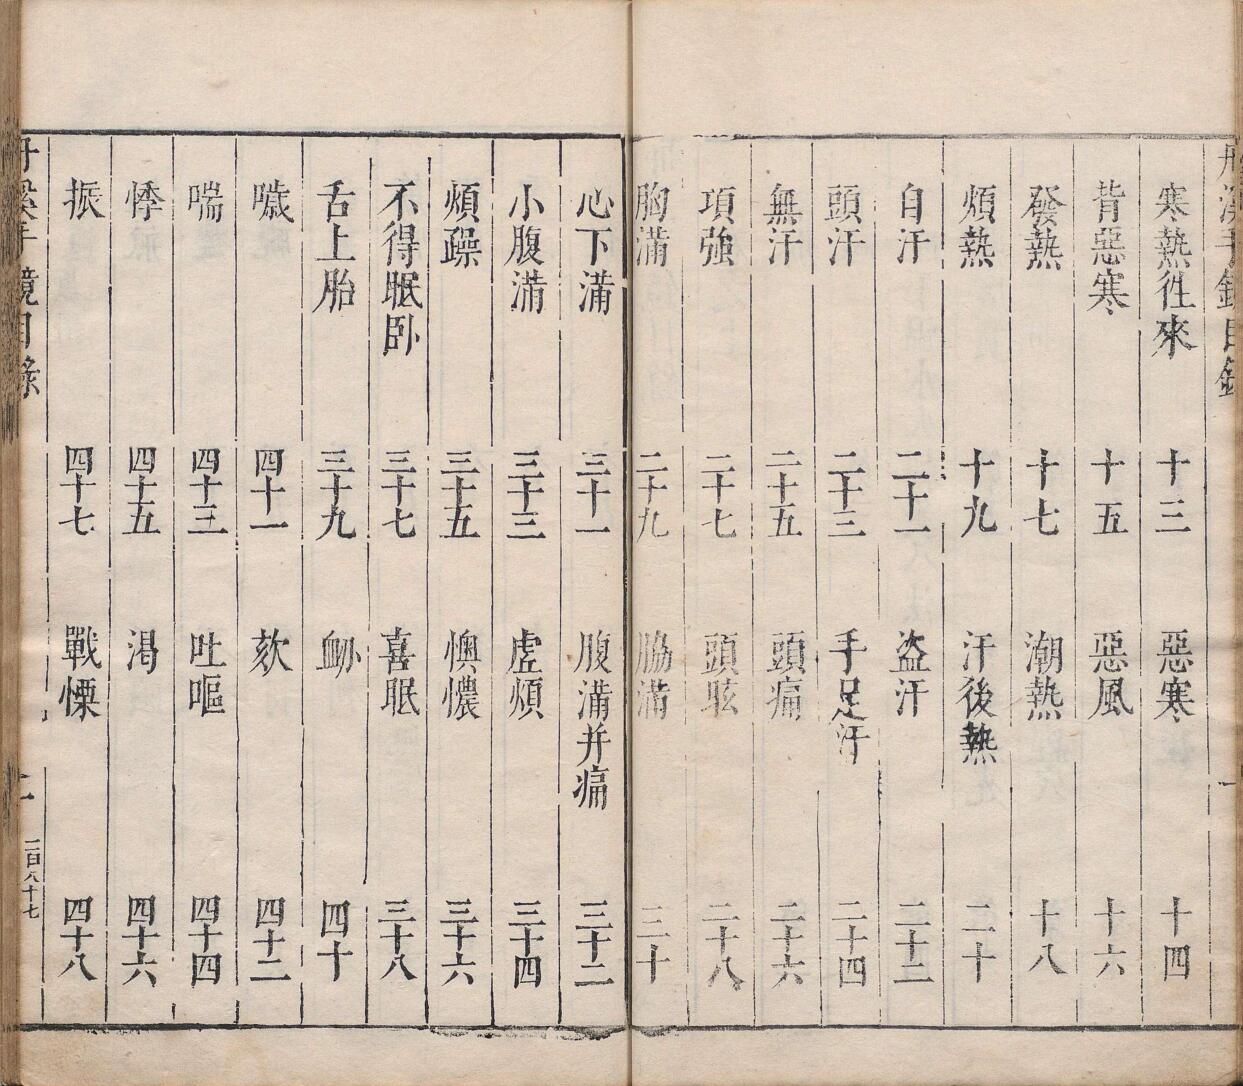 丹溪手鏡目錄
寒熱徃來 十三 惡寒 十四
背惡寒 十五 惡風 十六
發熱 十七 潮熱 十八
煩熱 十九 汗後熱 二十
自汗 二十一 盗汗 二十二
頭汗 二十三 手足汗 二十四
無汗 二十五 頭痛 二十六
項強 二十七 頭眩 二十八
胸滿 二十九 脇滿 三十
心下滿 三十一 腹滿并痛 三十二
小腹滿 三十三 虛煩 三十四
煩躁 三十五 懊憹 三十六
不得眠卧 三十七 喜眠 三十八
舌上胎 三十九 衂 四十
噦 四十一 欬 四十二
喘 四十三 吐嘔 四十四
悸 四十五 渴 四十六
振 四十七 戰慄 四十八
丹溪手鏡目錄 二百八十七